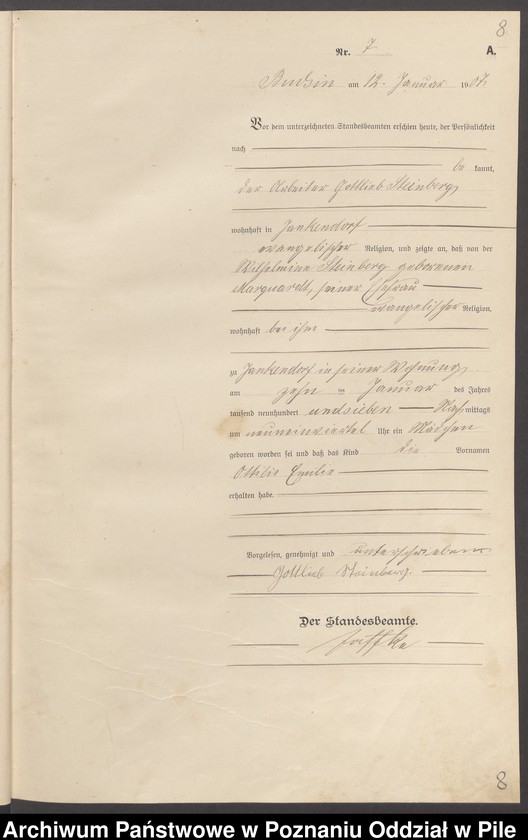 8
Nr. 7 A.
Budsin am 12. Januar 1907.
Vor dem unterzeichneten Standesbeamten erschien heute, der Persönlichkeit
nach
be kannt,
der Arbeiter Gottlieb Steinberg,
wohnhaft in Jankendorf
evangelischer Religion, und zeigte an, daß von der
Wilhelmine Steinberg geborenen
Marquardt, seiner Ehefrau
evangelischer Religion,
wohnhaft bei ihm
zu Jankendorf in seiner Wohnung,
am zehn ten Januar des Jahres
tausend neunhundert und sieben Nach mittags
um neuneinviertel Uhr ein Mädchen
geboren worden sei und daß das Kind die Vornamen
Ottilie Emilie
erhalten habe.
Vorgelesen, genehmigt und unterschrieben
Gottlieb Steinberg.
Der Standesbeamte.
8
Archiwum Państwowe w Poznaniu Oddział w Pile